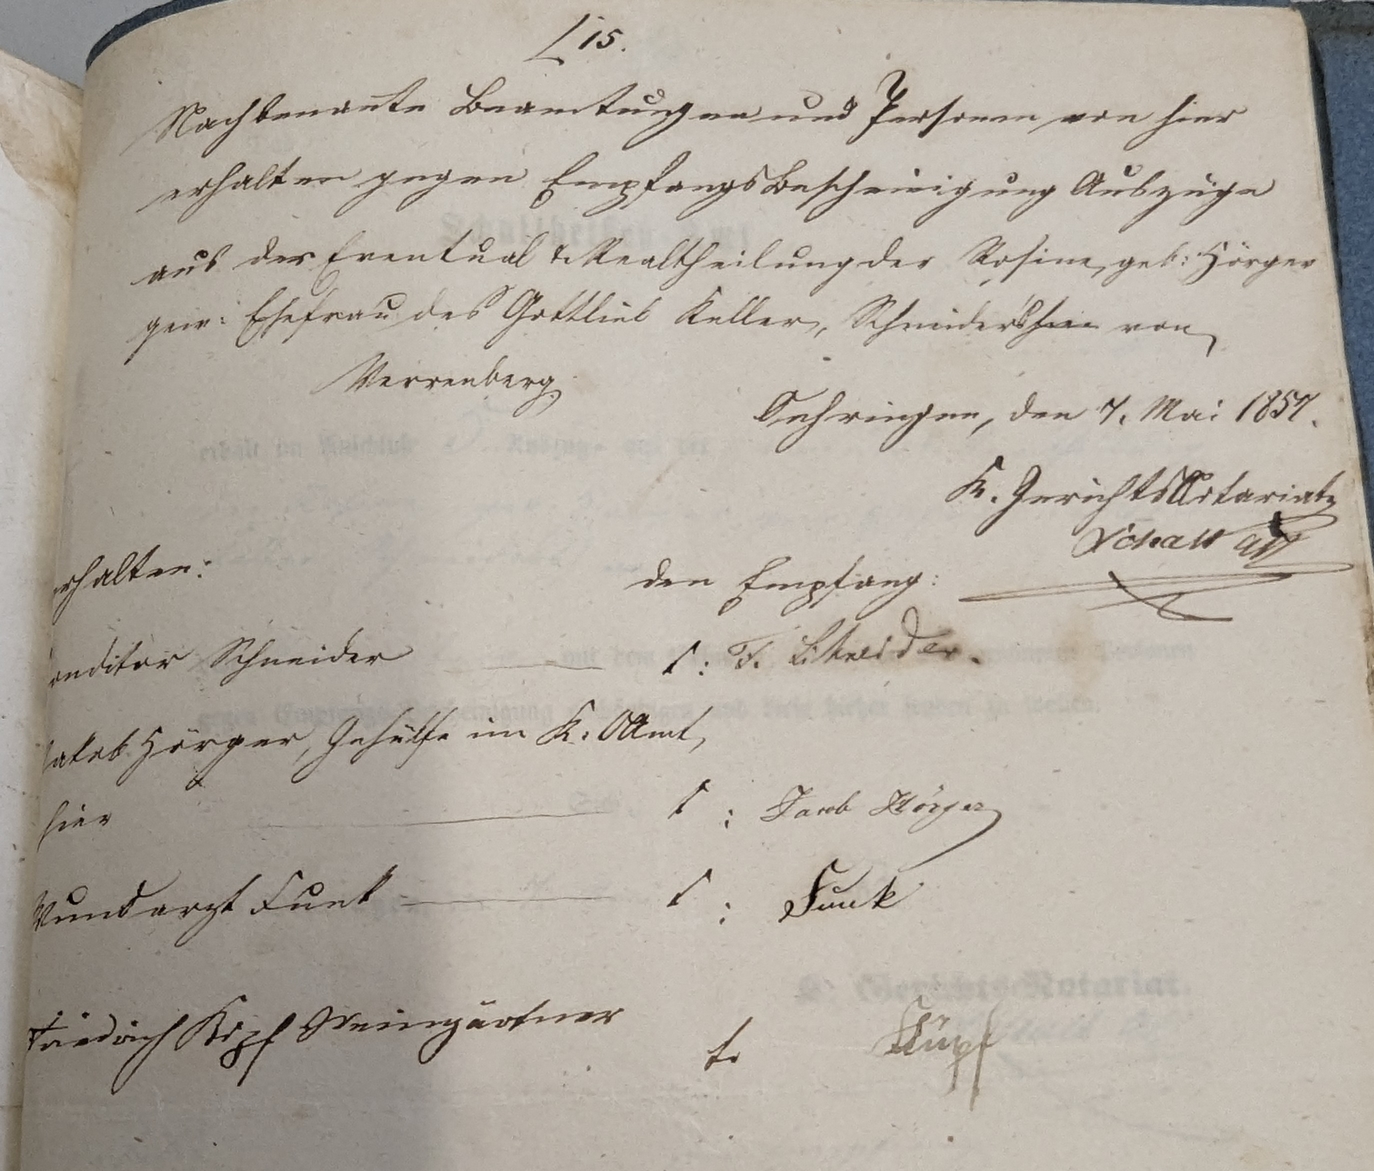 [15.
Nachbenannte Beamtungen und Personen von hier
erhalten gegen Empfangsbescheinigung Auszüge
aus der Eventual & Realtheilung der Rosine, geb: Hörger
gew: Ehefrau des Gottlieb Keller, Schneiders von
Verrenberg.
Oehringen, den 7. Mai 1857.
K. Gerichtsnotariat
erhalten:
den Empfang:
Conditor Schneider
t: F. Schneider.
Jakob Hörger, Gehülfe im K. OAmt,
hier
t: Jacob Hörger
Wundarzt Funk
t: Funk
Friedrich Küpf Weingärtner
t. Küpf